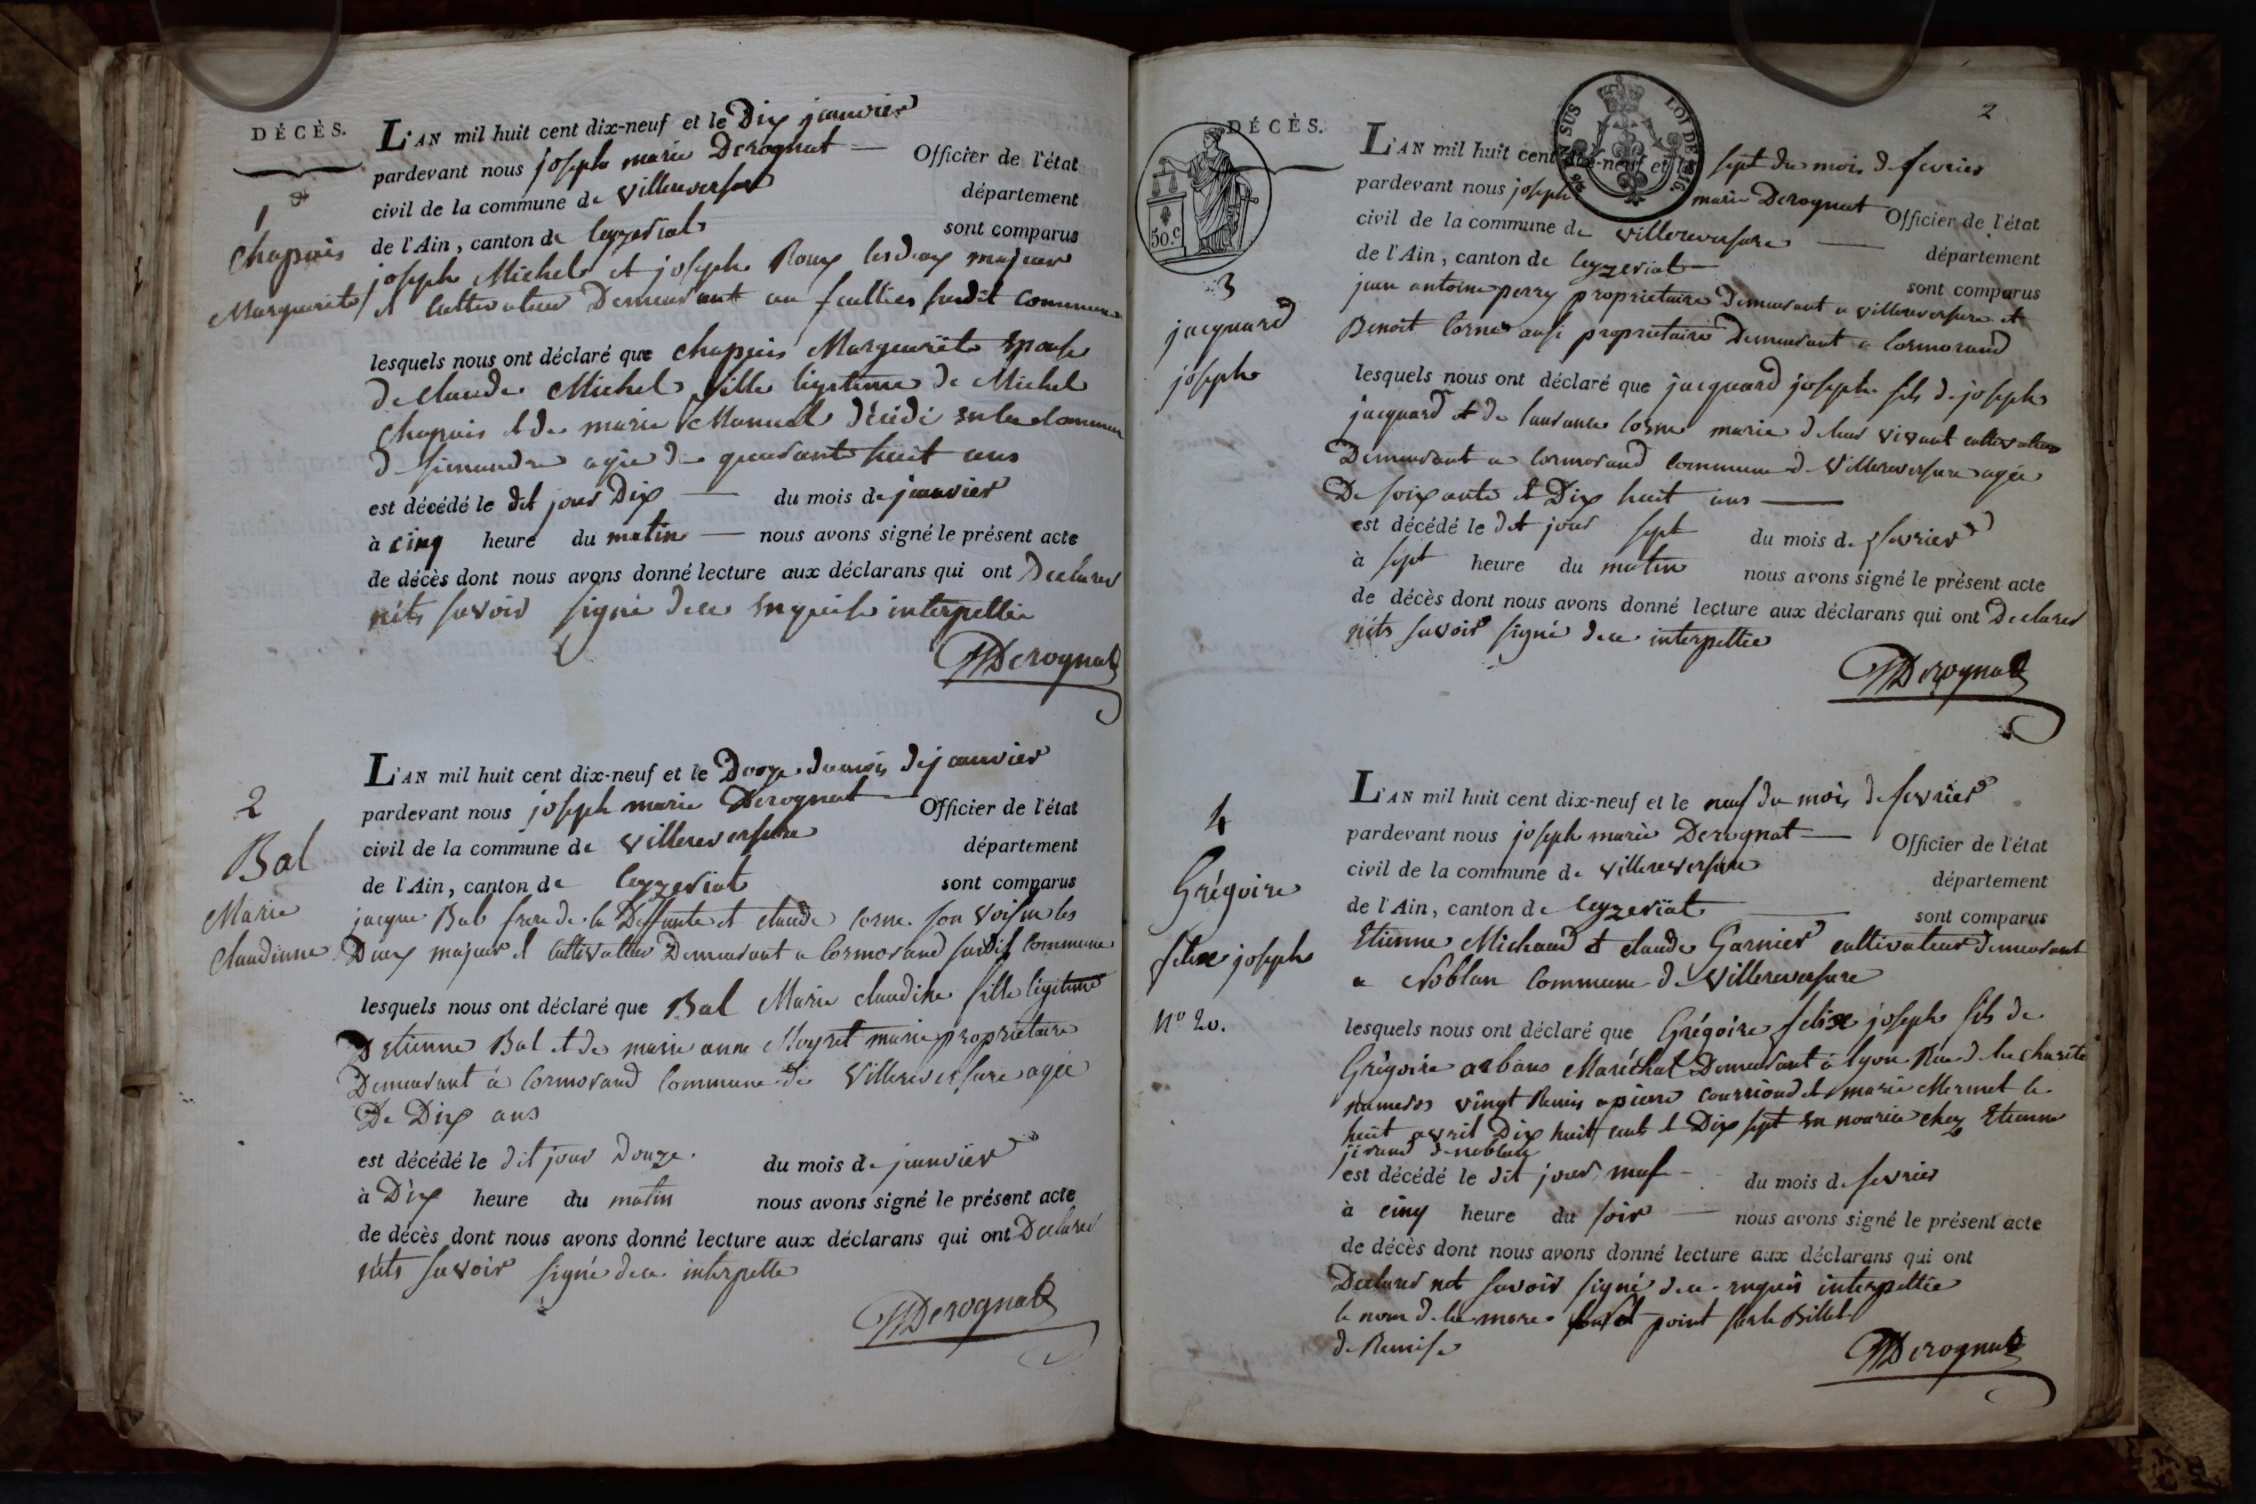 DÉCÈS.
1
Chapuis
Marguerite
L'AN mil huit cent dix-neuf et le Dix janvier
pardevant nous joseph marie Derognat — Officier de l'état
civil de la commune de villereversure département
de l'Ain, canton de Ceyzeriat sont comparus
joseph Michel et joseph Roux les deux majeur
et Cultivateur Demeurant au faulties surdit commune
lesquels nous ont déclaré que chapuis Margueritte Epouse
de claude Michel fille ligitime de Michel
Chapuis et de marie décédé sur la commune
de simandre agée de quarante huit ans
est décédé le dit jour Dix — du mois de janvier
à cinq heure du matin — nous avons signé le présent acte
de décès dont nous avons donné lecture aux déclarans qui ont Declarer
néts savoir signé dece enquis interpellée
JMDerognat
2
Bal
Marie
Claudinne
L'AN mil huit cent dix-neuf et le Douze du mois de janvier
pardevant nous joseph marie Derognat — Officier de l'état
civil de la commune de villereversure département
de l'Ain, canton de Ceyzeriat sont comparus
jacque Bal frere de la Deffunte et claude Corne son voisin les
Deux majeur et Cultivateur Demeurant a Cormorand surdit Commune
lesquels nous ont déclaré que Bal Marie claudine fille ligitime
D etienne Bal et de marie anne Moyret marie proprietaire
Demeurant à Cormorand Commune de Villereversure agée
De Dix ans
est décédé le dit jour Douze. du mois de janvier
à Dix heure du matin nous avons signé le présent acte
de décès dont nous avons donné lecture aux déclarans qui ont Declarer
néts savoir signé dece interpelle
JMDerognat
2
DÉCÈS.
50.c
EN SUS LOI DE 1816
3
jacquard
joseph
L'AN mil huit cent dix-neuf et le sept du mois de fevrier
pardevant nous joseph marie Derognat Officier de l'état
civil de la commune de villereversure — département
de l'Ain, canton de Ceyzeriat — sont comparus
jean antoine perry proprietaire demeurant a villereversure et
Benoit Corne ausi proprietaire Demeurant a Cormorand
lesquels nous ont déclaré que jacquard joseph fils de joseph
jacquard et de laurance Corne marie de leur vivant cultivateur
Demeurant a Cormorand Commune de Villereversure agée
De soixante et Dix huit ans —
est décédé le dit jour sept du mois de fevrier
à sept heure du matin nous avons signé le présent acte
de décès dont nous avons donné lecture aux déclarans qui ont Declarer
néts savoir signé dece interpellée
JMDerognat
4
Grégoire
felix joseph
No 20.
L'AN mil huit cent dix-neuf et le neuf du mois de fevrier
pardevant nous joseph marie Derognat — Officier de l'état
civil de la commune de villereversure département
de l'Ain, canton de Ceyzeriat — sont comparus
Etienne Michaud et claude Garnier cultivateur demeurant
a Noblan Commune de Villereversure
lesquels nous ont déclaré que Grégoire felix joseph fils de
Grégoire Maréchal Demeurant à Lyon Rue de la charité
numeros vingt Remis a pierre courriond et marie Mermet le
huit avril Dix huit cent et Dix sept en nourice chez Etienne
jirand de noblan
est décédé le dit jour neuf du mois de fevrier
à cinq heure du soir — nous avons signé le présent acte
de décès dont nous avons donné lecture aux déclarans qui ont
Declarer net savoir signé dece enquis interpellée
le nom de la mere point sur le Billet
de Remise
JMDerognat